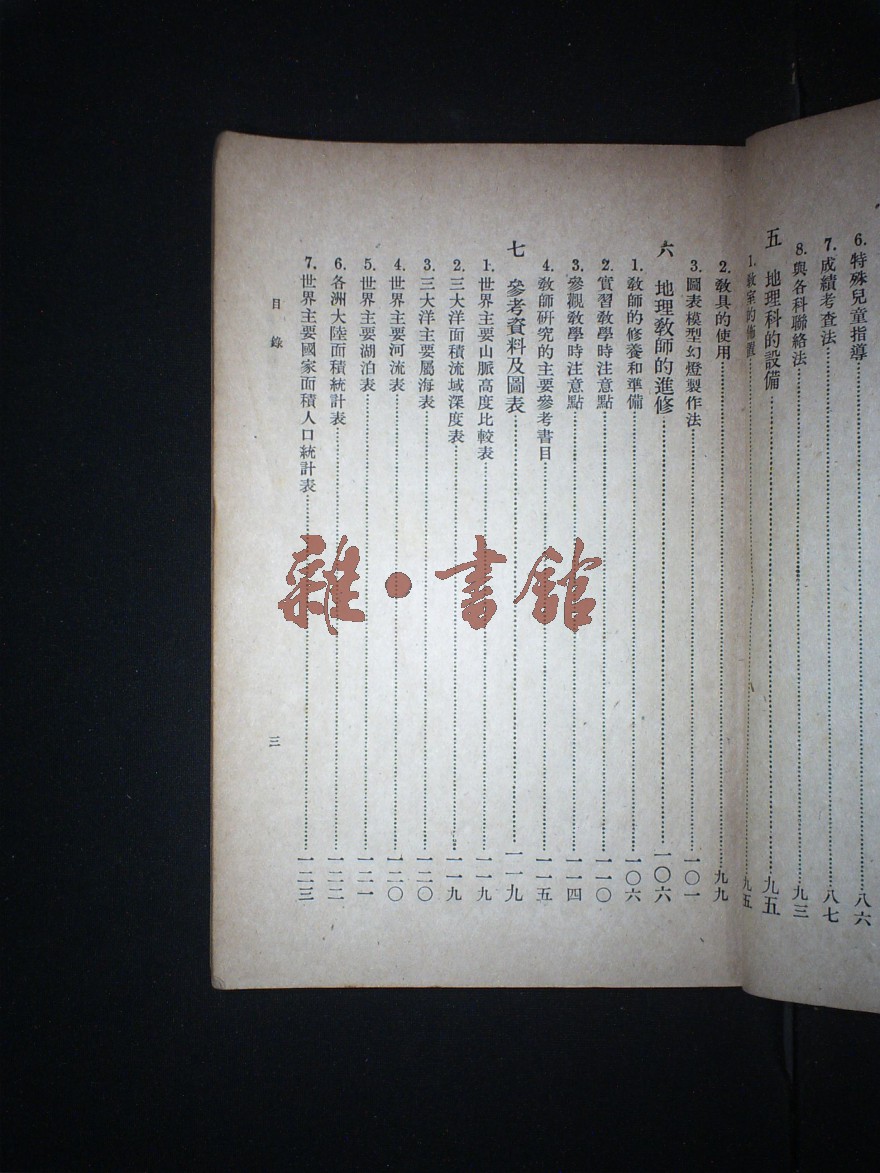 6. 特殊兒童指導……八六
7. 成績考查法……八七
8. 與各科聯絡法……九三
五 地理科的設備……九五
1. 教室的佈置……九五
2. 教具的使用……九九
3. 圖表模型幻燈製作法……一〇一
六 地理教師的進修……一〇六
1. 教師的修養和準備……一〇六
2. 實習教學時注意點……一一〇
3. 參觀教學時注意點……一一四
4. 教師研究的主要參考書目……一一五
七 參考資料及圖表……一一九
1. 世界主要山脈高度比較表……一一九
2. 三大洋面積流域深度表……一一九
3. 三大洋主要屬海表……一二〇
4. 世界主要河流表……一二〇
5. 世界主要湖泊表……一二一
6. 各洲大陸面積統計表……一二二
7. 世界主要國家面積人口統計表……一二三
目錄
三
雜·書館